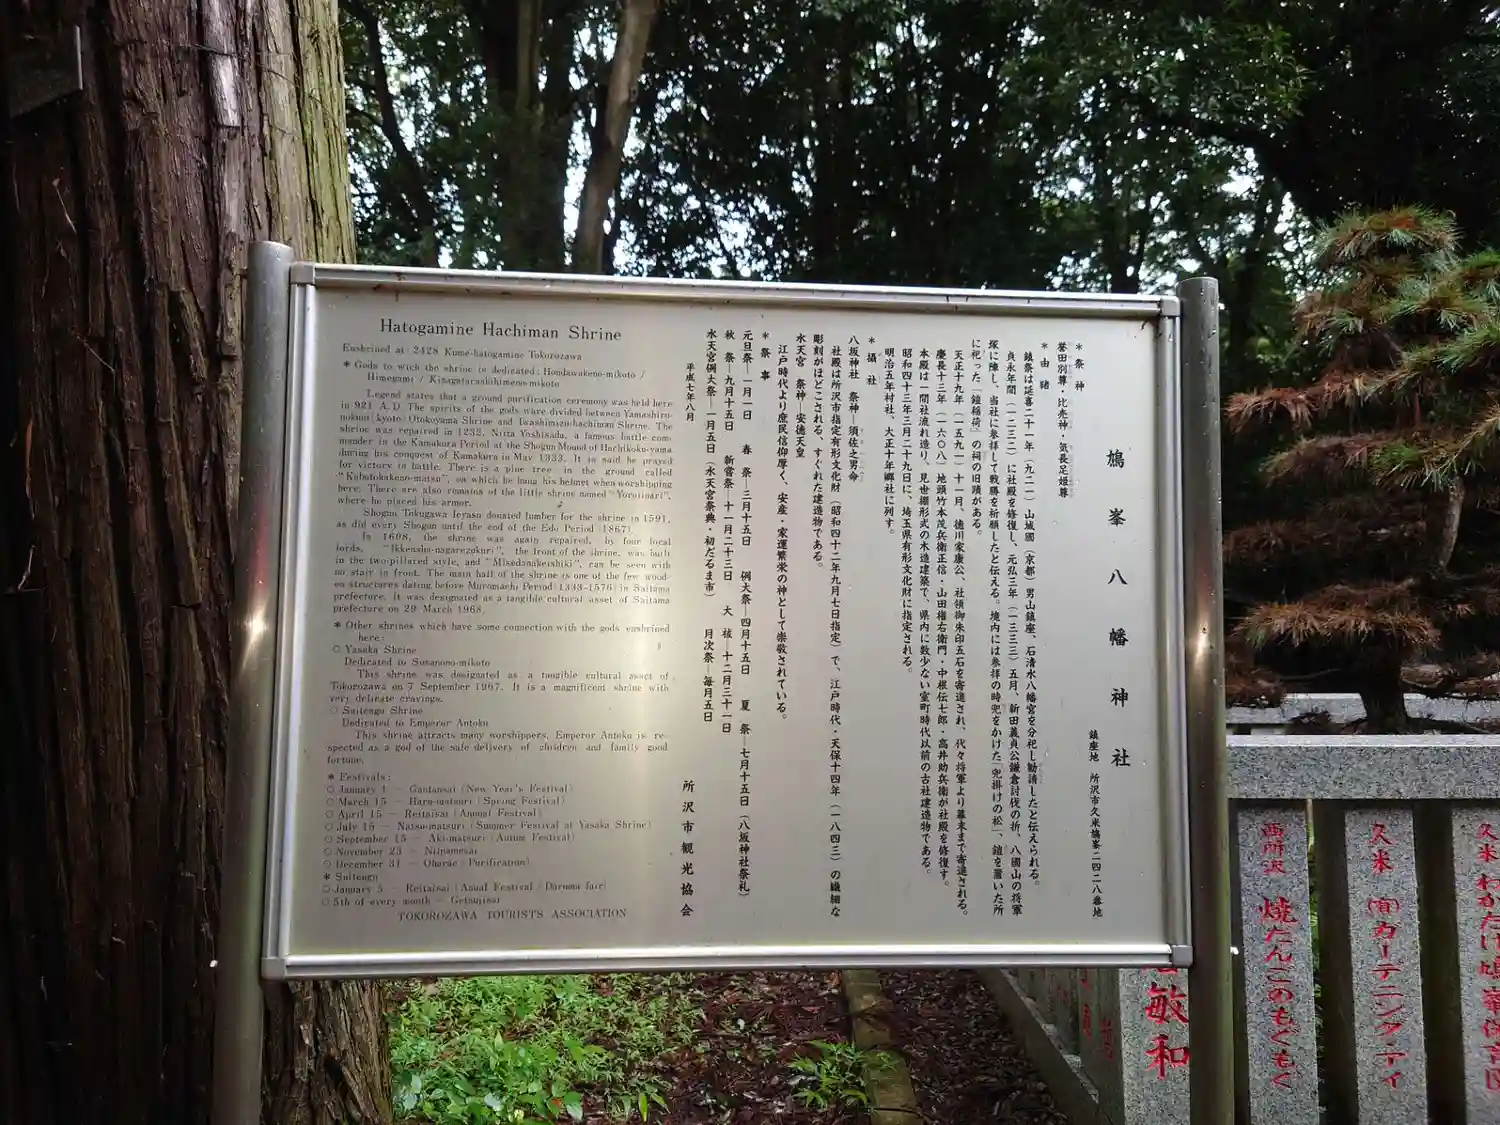 Hatogamine Hachiman Shrine
Enshrined at: 2428 Kume-hatogamine Tokorozawa
* Gods to wich the shrine is dedicated: Hondawakeno-mikoto /
Himegami / Kinagatarashihimeno-mikoto
Legend states that a ground purification ceremony was held here
in 921 A.D. The spirits of the gods ware divided between Yamashiro-
nokuni(kyoto) Otokoyama Shrine and Iwashimizu-hachiman Shrine. The
shrine was repaired in 1232. Nitta Yoshisada, a famous battle com-
mander in the Kamakura Period at the Shogun Mound of Hachikoku-yama
during his conquest of Kamakura in May 1333. It is said he prayed
for victory in battle. There is a pine tree in the ground called
"Kabutokakeno-matsu", on which he hung his helmet when worshipping
here. There are also remains of the little shrine named "Yoroiinari",
where he placed his armor.
Shogun Tokugawa Ieyasu donated lumber for the shrine in 1591,
as did every Shogun until the end of the Edo Period (1867).
In 1608, the shrine was again repaired, by four local
lords. "Ikkensha-nagarezukuri", the front of the shrine, was built
in the two-pillared style, and "Misedanakeishiki", can be seen with
no stair in front. The main hall of the shrine is one of the few wood-
en structures dating before Muromachi Period(1338-1576) in Saitama
prefecture. It was designated as a tangible cultural asset of Saitama
prefecture on 29 March 1968.
* Other shrines which have some connection with the gods enshrined
here:
○ Yasaka Shrine
Dedicated to Susanono-mikoto
This shrine was designated as a tangible cultural asset of
Tokorozawa on 7 September 1967. It is a magnificent shrine with
very delicate carvings.
○ Suitengu Shrine
Dedicated to Emperor Antoku
This shrine attracts many worshippers. Emperor Antoku is re-
spected as a god of the safe delivery of children and family good
fortune.
* Festivals:
○ January 1 — Gantansai (New Year's Festival)
○ March 15 — Haru-matsuri (Spring Festival)
○ April 15 — Reitaisai (Annual Festival)
○ July 15 — Natsu-matsuri (Summer Festival at Yasaka Shrine)
○ September 15 — Aki-matsuri (Autum Festival)
○ November 23 — Niinamesai
○ December 31 — Oharae (Purification)
* Suitengu
○ January 5 — Reitaisai (Anual Festival / Daruma fair)
○ 5th of every month — Getsujisai
TOKOROZAWA TOURISTS ASSOCIATION
鳩峯八幡神社
鎮座地 所沢市久米鳩峯二四二八番地
*祭神
誉田別尊・比売神・気長足姫尊
*由緒
鎮祭は延喜二十一年(九二一)山城國(京都)男山鎮座、石清水八幡宮を分祀し勧請したと伝えられる。
貞永年間(一二三二)に社殿を修復し、元弘三年(一三三三)五月、新田義貞公鎌倉討伐の折、八國山の将軍
塚に陣し、当社に参拝して戦勝を祈願したと伝える。境内には参拝の時兜をかけた「兜掛けの松」、鎧を置いた所
に祀った「鎧稲荷」の祠の旧蹟がある。
天正十九年(一五九一)十一月、徳川家康公、社領御朱印五石を寄進され、代々将軍より幕末まで寄進される。
慶長十三年(一六〇八)地頭竹本茂兵衛正信・山田権右衛門・中根伝七郎・高井助兵衛が社殿を修復す。
本殿は一間社流れ造り、見世棚形式の木造建築で、県内に数少ない室町時代以前の古社建造物である。
昭和四十三年三月二十九日に、埼玉県有形文化財に指定される。
明治五年村社、大正十年郷社に列す。
*摂社
八坂神社 祭神—須佐之男命
社殿は所沢市指定有形文化財(昭和四十二年九月七日指定)で、江戸時代・天保十四年(一八四三)の繊細な
彫刻がほどこされる、すぐれた建造物である。
水天宮 祭神—安徳天皇
江戸時代より庶民信仰厚く、安産・家運繁栄の神として崇敬されている。
*祭事
元旦祭—一月一日 春祭—三月十五日 例大祭—四月十五日 夏祭—七月十五日(八坂神社祭礼)
秋祭—九月十五日 新嘗祭—十一月二十三日 大祓—十二月三十一日
水天宮例大祭—一月五日(水天宮祭典・初だるま市) 月次祭—毎月五日
平成七年八月
所沢市観光協会
敏和
西所沢 焼だんごのもぐもぐ
久米 (有)ガーデニング・アイ
久米 わかたけ鳩峯